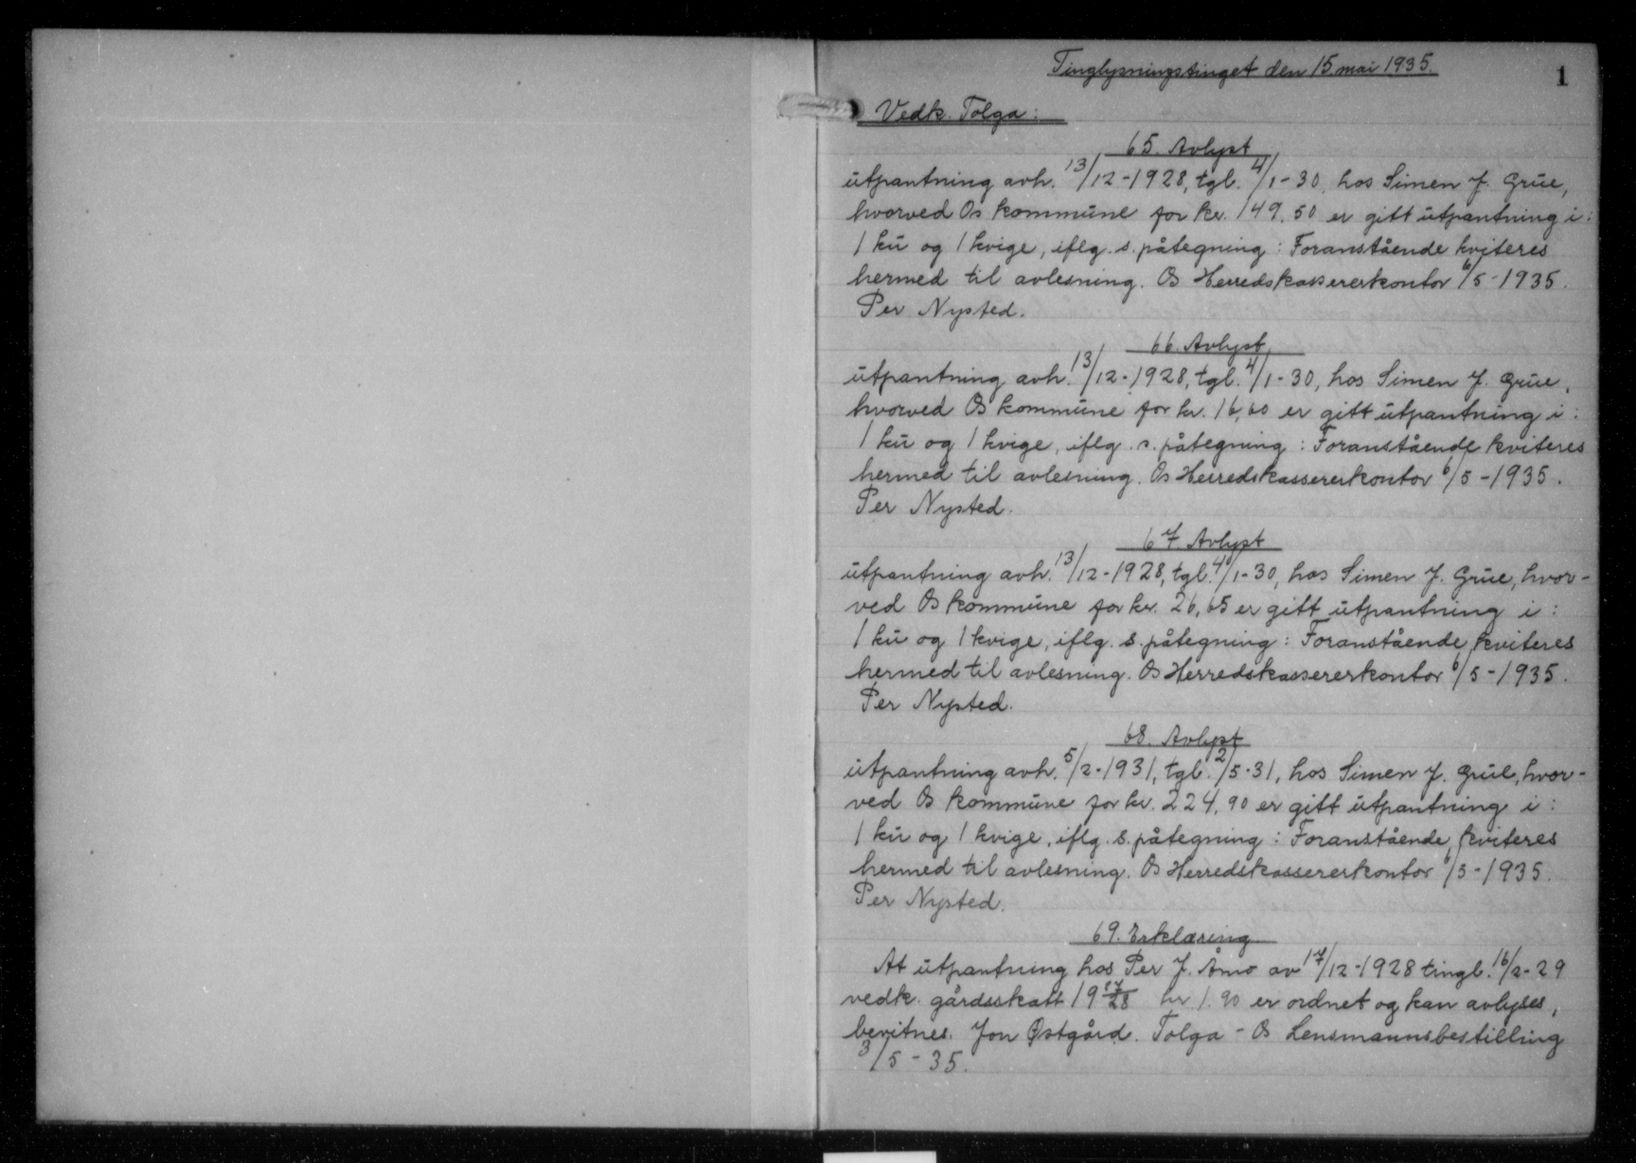 Tinglysningstinget den 15 mai 1935.
1
Vedk. Tolga:
65. Avlyst
utpantning avh. 13/12-1928, tgl. 4/1-30, hos Simen J. Grue,
hvorved Os kommune for kr. 149.50 er gitt utpantning i:
1 ku og 1 kvige, iflg. s. påtegning: Foranstående kviteres
hermed til avlesning. Os Herredskassererkontor 6/5-1935.
Per Nysted.
66. Avlyst
utpantning avh. 13/12-1928, tgl. 4/1-30, hos Simen J. Grue,
hvorved Os kommune for kr. 16,60 er gitt utpantning i:
1 ku og 1 kvige, iflg. s. påtegning: Foranstående kviteres
hermed til avlesning. Os Herredskassererkontor 6/5-1935.
Per Nysted.
67. Avlyst
utpantning avh. 13/12-1928, tgl. 4/1-30, hos Simen J. Grue, hvor-
ved Os kommune for kr. 26,65 er gitt utpantning i:
1 ku og 1 kvige, iflg. s. påtegning: Foranstående kviteres
hermed til avlesning. Os Herredskassererkontor 6/5-1935.
Per Nysted.
68. Avlyst
utpantning avh. 5/2-1931, tgl. 12/5-31, hos Simen J. Grue, hvor-
ved Os kommune for kr. 224,90 er gitt utpantning i:
1 ku og 1 kvige, iflg. s. påtegning: Foranstående kviteres
hermed til avlesning. Os Herredskassererkontor 6/5-1935.
Per Nysted.
69. Erklæring
At utpantning hos Per J. Åmo av 17/12-1928 tingl. 16/2-29
vedk. gårdsskatt 19 27/28 kr 1.90 er ordnet og kan avlyses,
bevitnes. Jon Østgård. Tolga - Os Lensmannsbestilling
3/5-35.